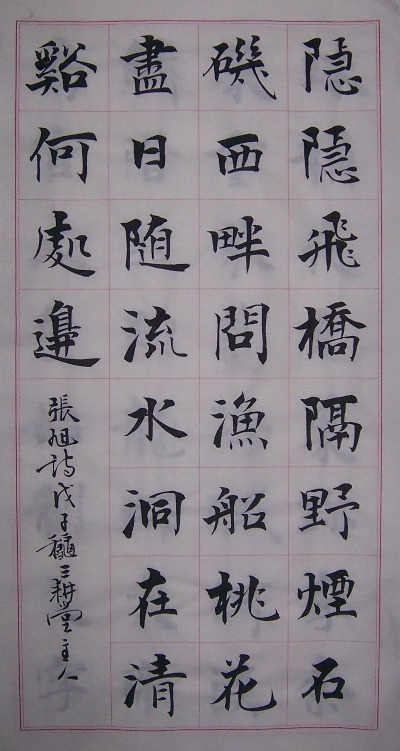 隱隱飛橋隔野煙石
磯西畔問漁船桃花
盡日随流水洞在清
谿何處邊
張旭詩戊子龝三耕堂主人